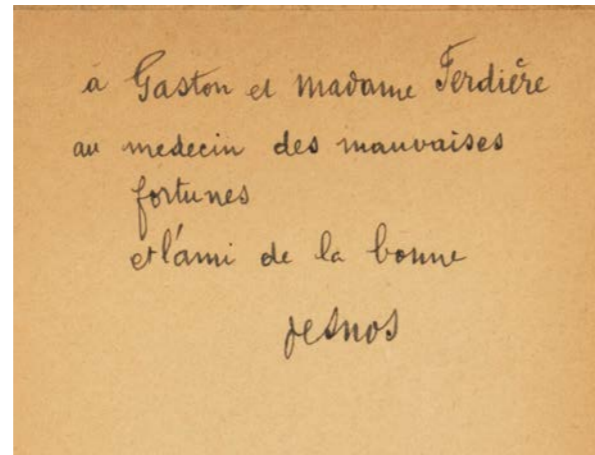 à Gaston et madame Ferdière
au medecin des mauvaises
fortunes
et l'ami de la bonne
desnos